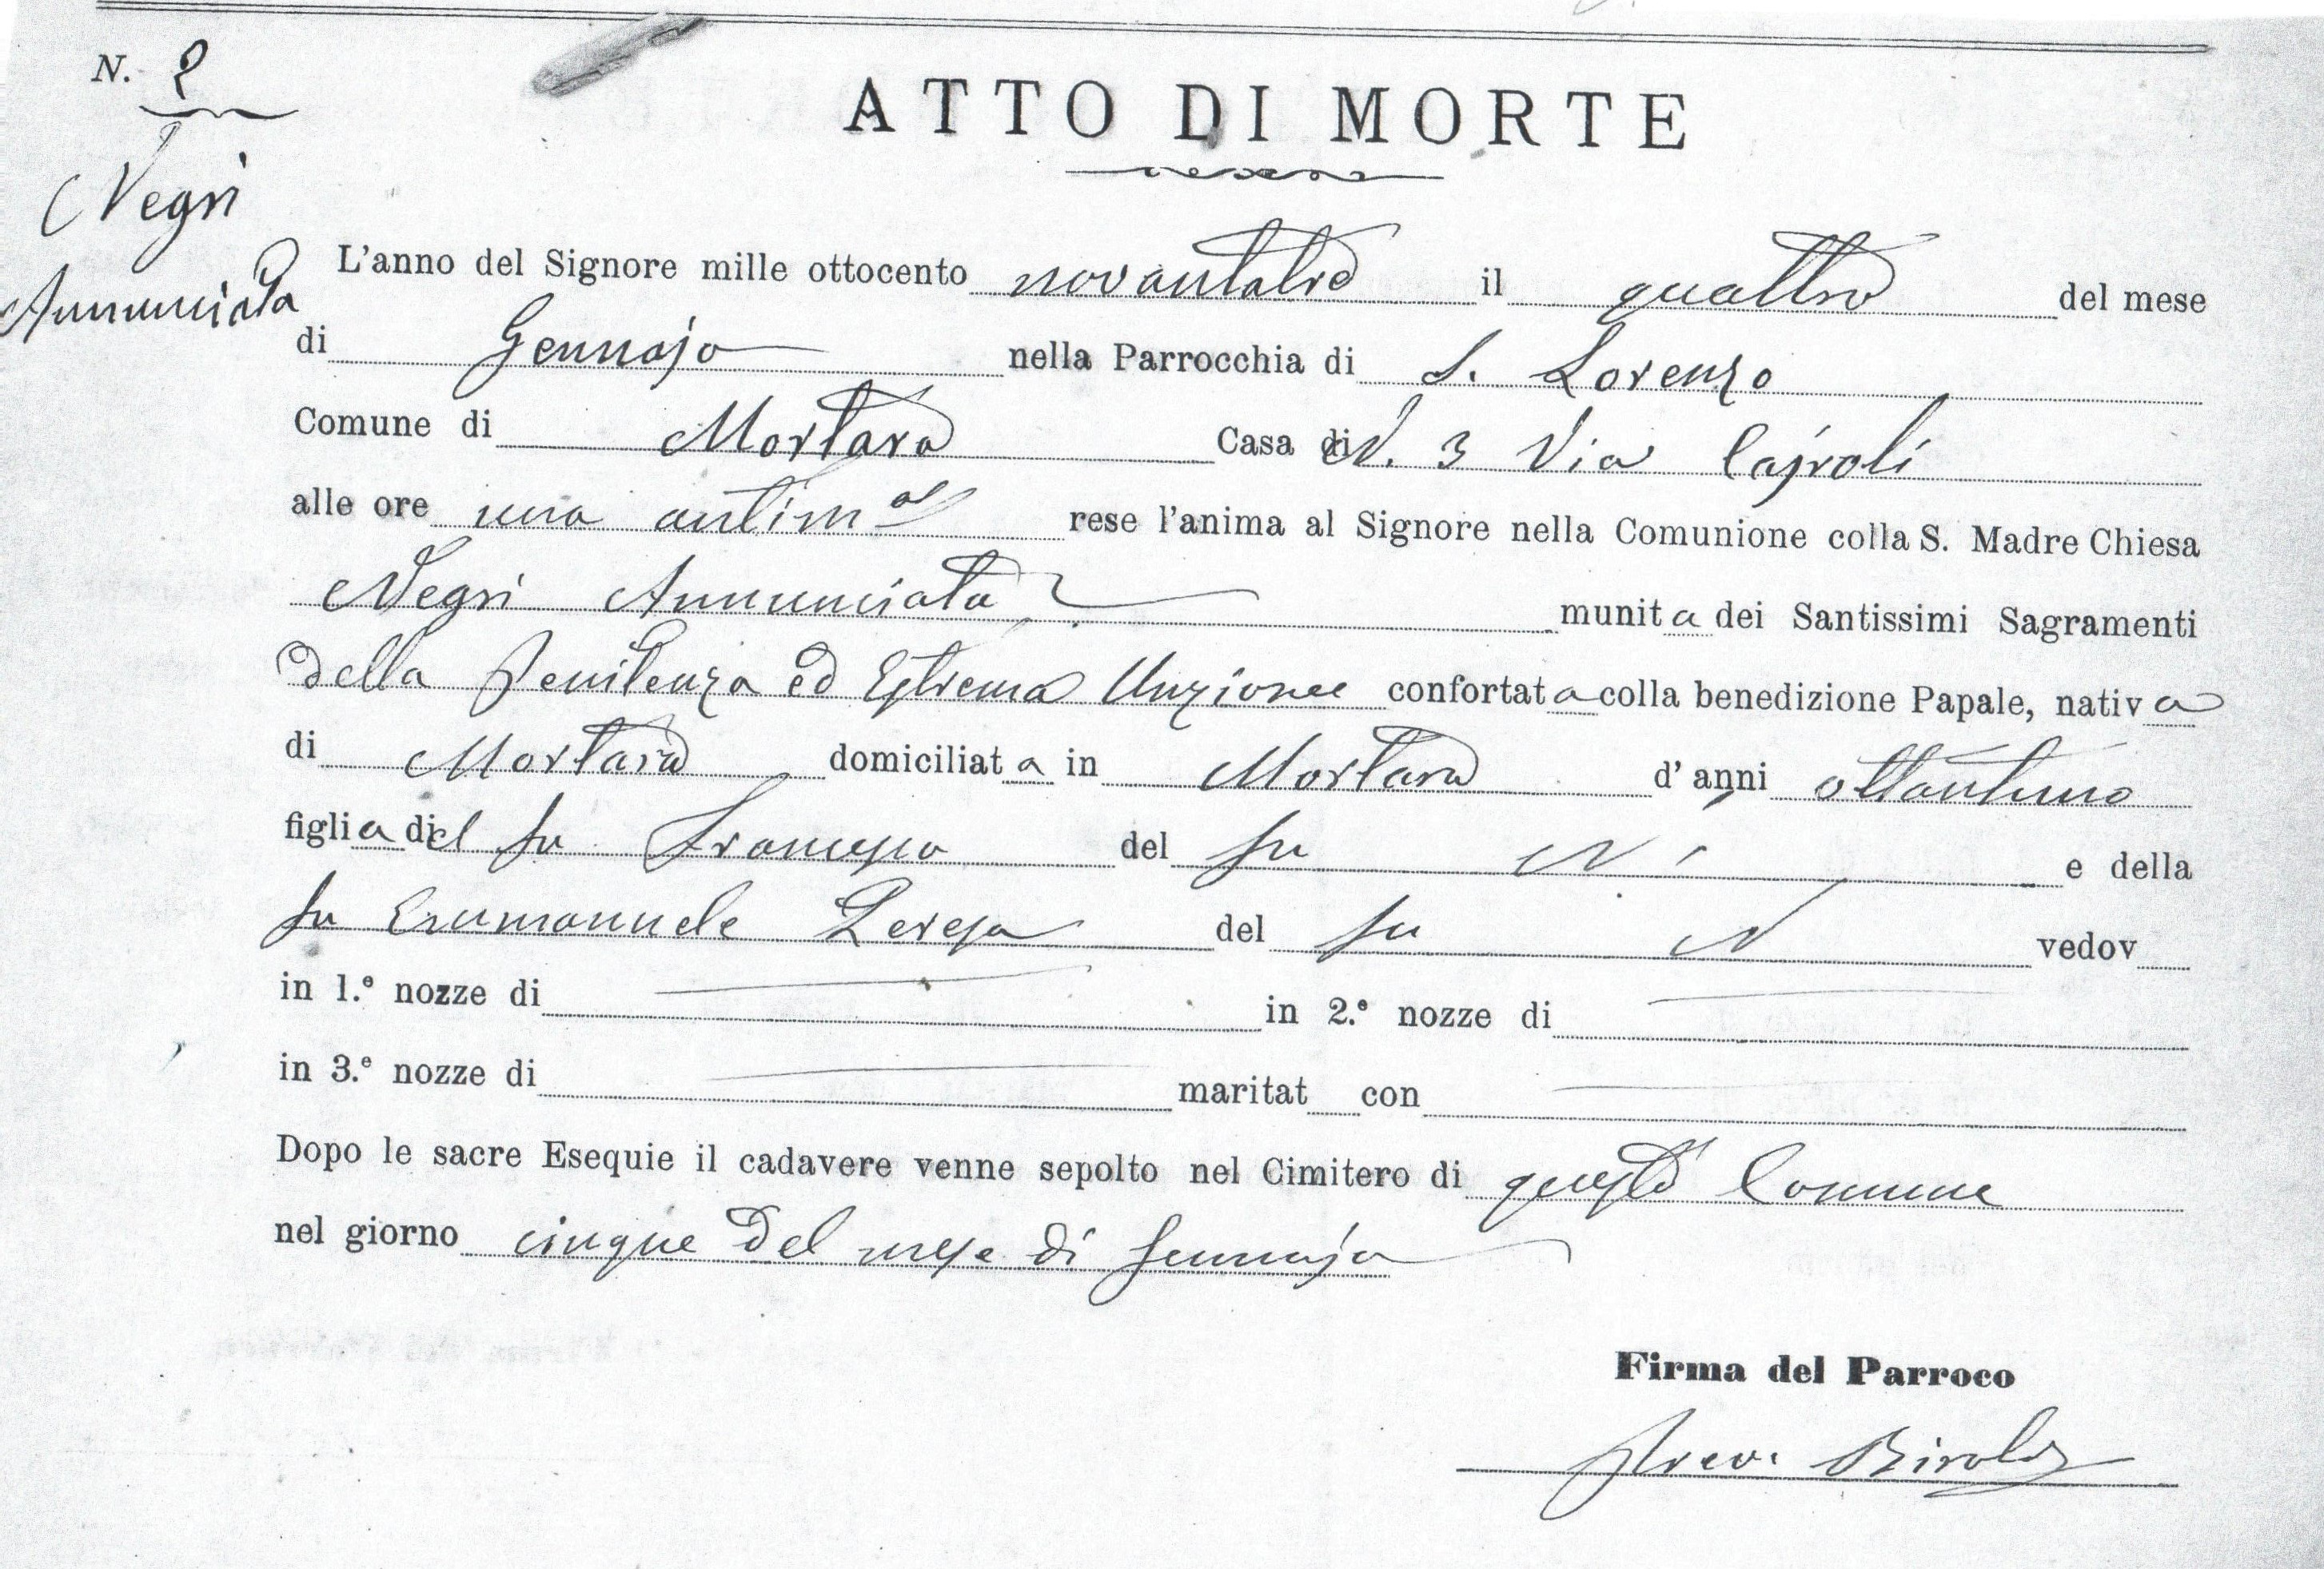 N. 2
ATTO DI MORTE
Negri
Annunciata
L'anno del Signore mille ottocento novantatre il quattro del mese
di Gennajo nella Parrocchia di S. Lorenzo
Comune di Mortara Casa di N. 3 Via
alle ore una antim rese l'anima al Signore nella Comunione colla S. Madre Chiesa
Negri Annunciata munita dei Santissimi Sagramenti
della Penitenza ed Estrema Unzione confortata colla benedizione Papale, nativa
di Mortara domiciliata in Mortara d'anni ottantuno
figlia del fu Francesco del fu N e della
fu Emmanuele Teresa del fu N vedov
in 1.e nozze di in 2.e nozze di
in 3.e nozze di maritat con
Dopo le sacre Esequie il cadavere venne sepolto nel Cimitero di questo Comune
nel giorno cinque del mese di Gennajo
Firma del Parroco
Prev.